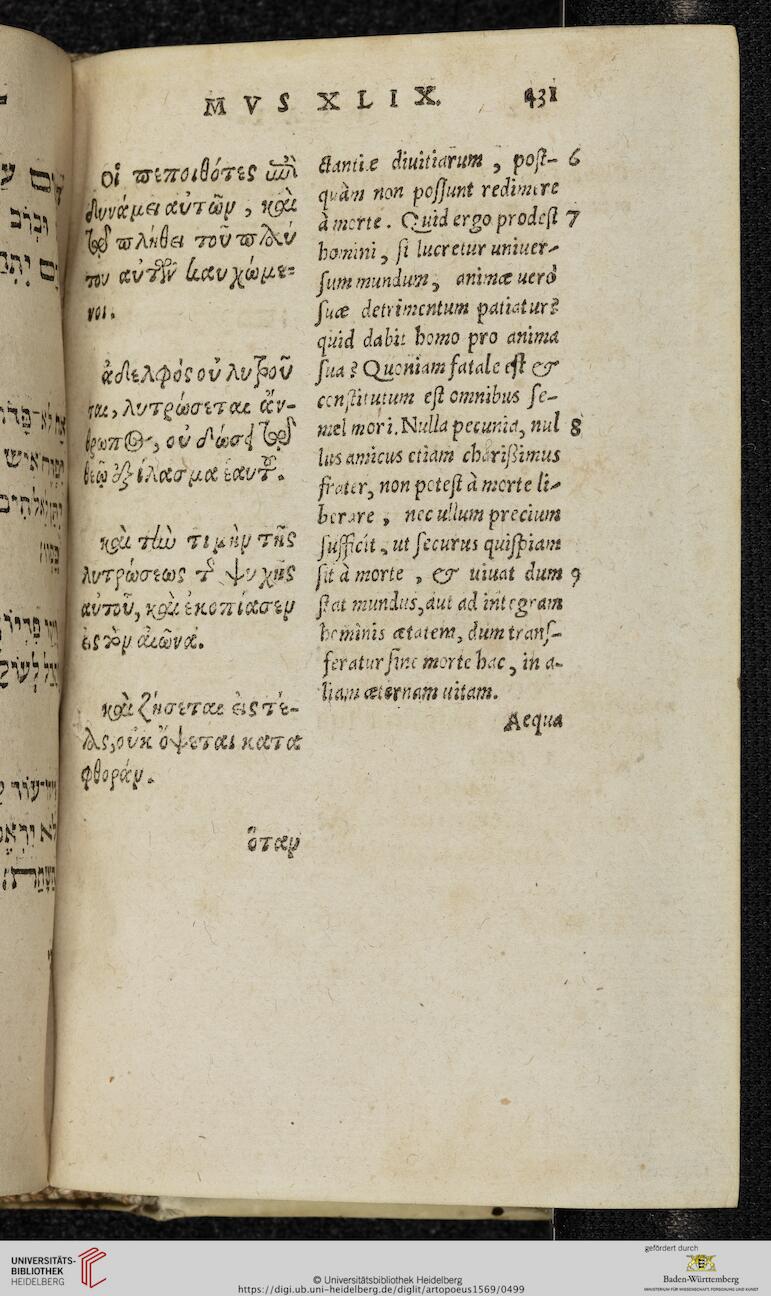 MVS XLIX. 431
οἱ πεποιθότες ἐπὶ
δυνάμει αὐτῶν, καὶ
ἐπὶ πλήθει τοῦ πλού
του αὐτῶν καυχώμε=
νοι.
ἀδελφὸς οὐ λυτροῦ
ται, λυτρώσεται ἄν-
θρωπος, οὐ δώσει τῷ
θεῷ ἐξίλασμα ἑαυτοῦ.
καὶ τὴν τιμὴν τῆς
λυτρώσεως τῆς ψυχῆς
αὐτοῦ, καὶ ἐκοπίασεν
εἰς τὸν αἰῶνα.
καὶ ζήσεται εἰς τέ-
λος, οὐκ ὄψεται κατα
φθοράν.
ὅταν
ctantiæ diuitiarum, post- 6
quàm non possunt redimere
à morte. Quid ergo prodest 7
homini, si lucretur uniuer-
sum mundum, animæ uerò
suæ detrimentum patiatur?
quid dabit homo pro anima
sua? Quoniam fatale est &
constitutum est omnibus se-
mel mori. Nulla pecunia, nul 8
lus amicus etiam charißimus
frater, non potest à morte li-
berare, nec ullum precium
sufficit, ut securus quispiam
sit à morte, & uiuat dum 9
stat mundus, aut ad integram
hominis ætatem, dum trans-
feratur sine morte hac, in a-
liam æternam uitam.
Aequa
UNIVERSITÄTS-
BIBLIOTHEK
HEIDELBERG
© Universitätsbibliothek Heidelberg
https://digi.ub.uni-heidelberg.de/diglit/artopoeus1569/0499
gefördert durch
Baden-Württemberg
MINISTERIUM FÜR WISSENSCHAFT, FORSCHUNG UND KUNST